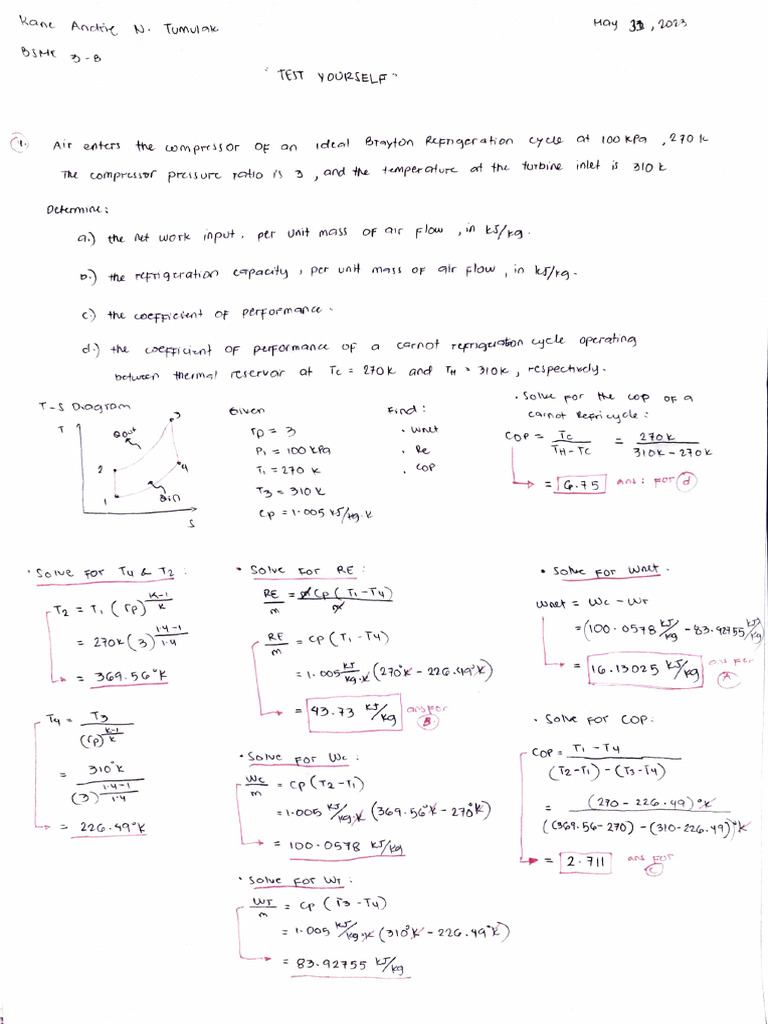 Kane Andrie N. Tumulak
May 31, 2023
BSME 3-B
"TEST YOURSELF"
1. Air enters the compressor of an ideal Brayton Refrigeration cycle at 100 kPa, 270 K
The compressor pressure ratio is 3, and the temperature at the turbine inlet is 310 K
Determine:
a.) the net work input, per unit mass of air flow, in kJ/kg.
b.) the refrigeration capacity, per unit mass of air flow, in kJ/kg.
c.) the coefficient of performance.
d.) the coefficient of performance of a carnot refrigeration cycle operating
between thermal reservoir at Tc = 270K and TH = 310K, respectively.
T-S Diagram
T
Qout
3
2
4
1
Qin
S
Given
rp = 3
P1 = 100 kPa
T1 = 270 K
T3 = 310 K
Cp = 1.005 kJ/kg.K
Find:
• Wnet
• Re
• COP
• Solve for the COP of a
carnot Refri cycle:
COP = Tc / TH - Tc = 270K / 310K - 270K
= 6.75 ans: for d
• Solve for T4 & T2:
T2 = T1 (rp)^K-1/K
= 270K (3)^1.4-1/1.4
= 369.56°K
T4 = T3 / (rp)^K-1/K
= 310°K / (3)^1.4-1/1.4
= 226.49°K
• Solve for RE:
RE/m = mCp (T1 - T4) / m
RE/m = Cp (T1 - T4)
= 1.005 kJ/kg.K (270°K - 226.49°K)
= 43.73 kJ/kg ans for B.
• Solve for Wc:
Wc/m = Cp (T2 - T1)
= 1.005 kJ/kg.K (369.56°K - 270°K)
= 100.0578 kJ/kg
• Solve for WT:
WT/m = Cp (T3 - T4)
= 1.005 kJ/kg.K (310°K - 226.49°K)
= 83.92755 kJ/kg
• Solve for Wnet.
Wnet = Wc - WT
= (100.0578 kJ/kg - 83.92755 kJ/kg)
= 16.13025 kJ/kg ans for A
• Solve for COP:
COP = T1 - T4 / (T2 - T1) - (T3 - T4)
= (270 - 226.49)°K / ((369.56 - 270) - (310 - 226.49)°K
= 2.711 ans for C